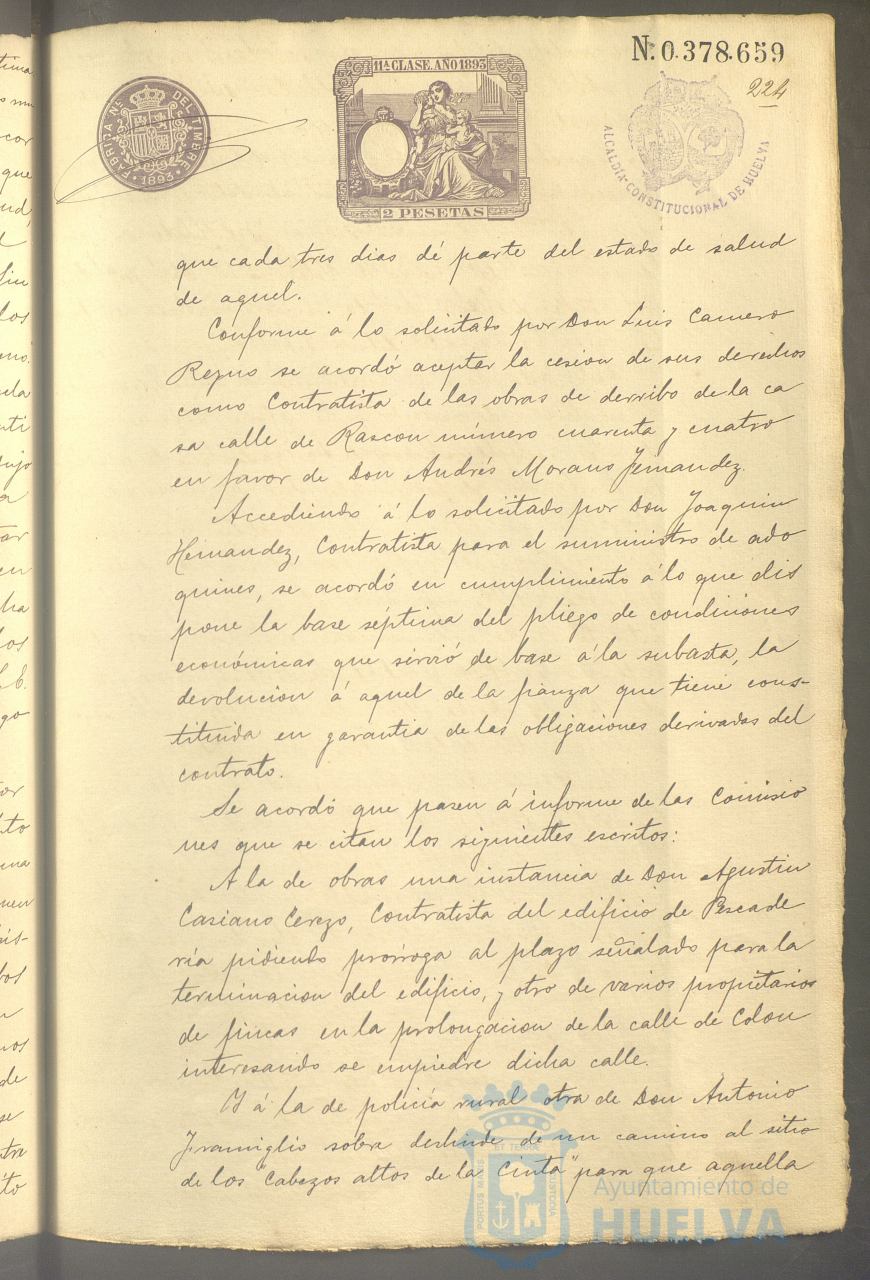 N.º 0.378.659
224
FABRICA Nal. DEL TIMBRE
1893
11ª CLASE. AÑO 1893
2 PESETAS
ALCALDIA-CONSTITUCIONAL DE HUELVA
que cada tres dias dé parte del estado de salud
de aquel.
Conforme á lo solicitado por Don Luis Camero
se acordó aceptar la cesion de sus derechos
como Contratista de las obras de derribo de la ca
sa calle de Rascon número cuarenta y cuatro
en favor de Don Andrés Morano Fernandez.
Accediendo á lo solicitado por Don Joaquin
Hernandez, Contratista para el suministro de ado
quines, se acordó en cumplimiento á lo que dis
pone la base séptima del pliego de condiciones
económicas que sirvió de base á la subasta, la
devolucion á aquel de la fianza que tiene cons-
tituida en garantia de las obligaciones derivadas del
contrato.
Se acordó que pasen á informe de las Comisio
nes que se citan los siguientes escritos:
A la de obras una instancia de Don Agustin
Casiano Cerezo, Contratista del edificio de Pescade
ría pidiendo prórroga al plazo señalado para la
terminacion del edificio, y otro de varios propietarios
de fincas en la prolongacion de la calle de Colon
interesando se empiedre dicha calle.
Y á la de policía rural otra de Don Antonio
Framiglio sobre deslinde de un camino al sitio
de los "Cabezos altos de la Cinta" para que aquella
PORTUS MARIS ET TERRAE CUSTODIA
Ayuntamiento de
HUELVA